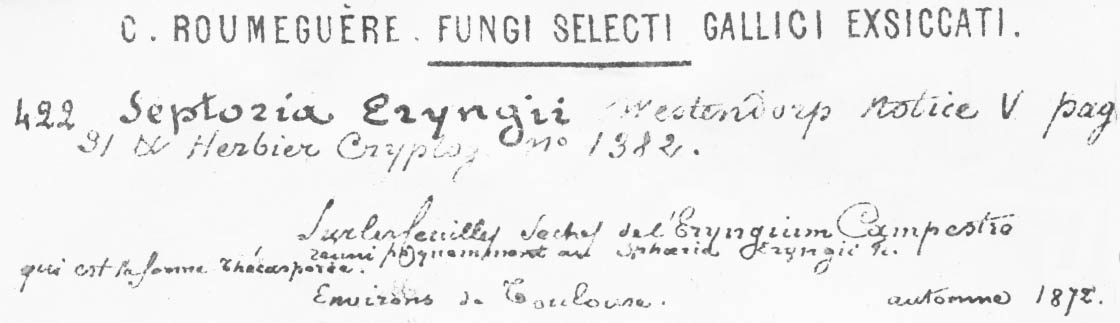 C. ROUMEGUÈRE. FUNGI SELECTI GALLICI EXSICCATI.
422 Septoria Eryngii Westendorp Notice V pag
31 & Herbier Cryptog no 1382.
Sur les feuilles seches de l'Eryngium Campestre
reuni au Sphæria Eryngii
qui est la forme thécasporée.
Environs de Toulouse. automne 1872.